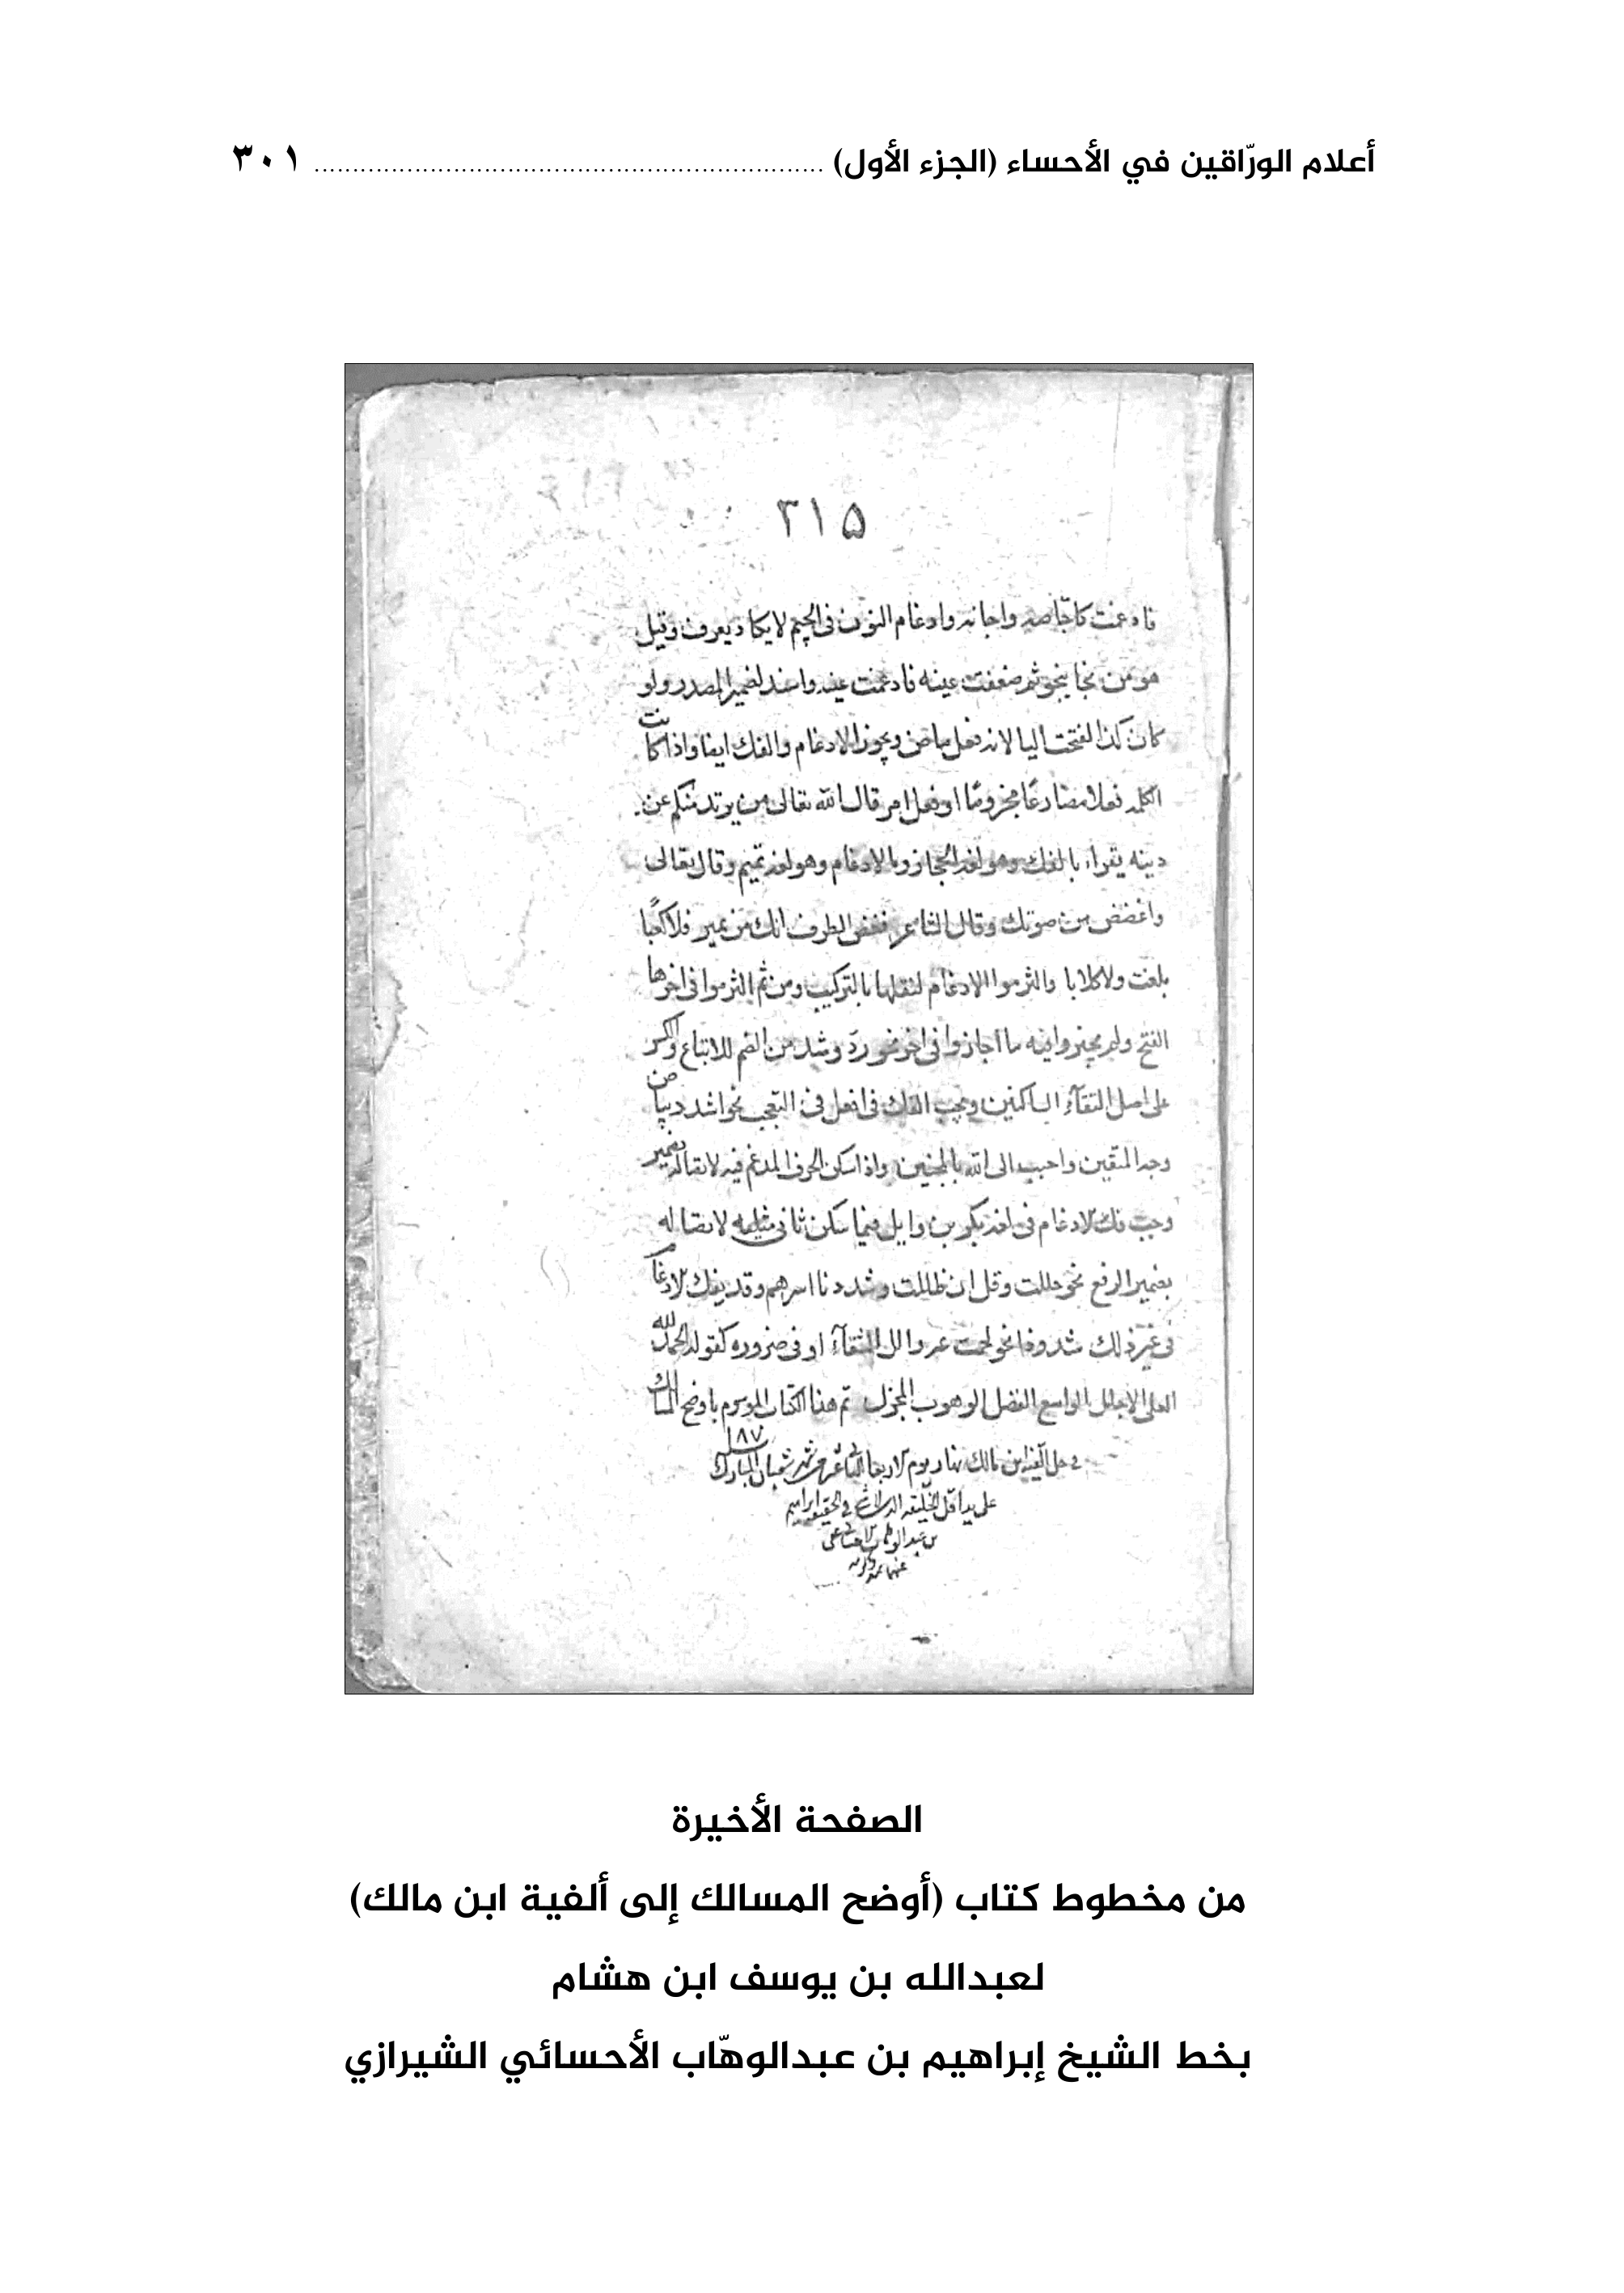 أعلام الورّاقين في الأحساء (الجزء الأول) ................................................................ ٣٠١
٣١٥
فادغمت كاجاصه واجانه وادغام النون فى الجيم لا يكاد يعرف وقيل
هو من نجا ينجو ثم ضعفت عينه فادغمت عينه واسند لضمير المصدر ولو
كان كذا لفتحت اليا لانه فعل ماض ويجوز الادغام والفك ايضا واذا كانت
الكلمه فعلا مضارعًا مجزومًا او فعل امر قال الله تعالى من يرتد منكم عن
دينه يقراء بالفك وهو لغه الحجاز وبالادغام وهو لغه تميم وقال تعالى
واغضض من صوتك وقال الشاعر فغض الطرف انك من نمير فلا كعبًا
بلغت ولا كلابا والتزموا الادغام لثقلها بالتركيب ومن ثم التزموا فى اخرها
الفتح ولم يجيزوا فيه ما اجازوا فى اخر نحو ردّ وشد من الضم للاتباع والكسر
على اصل التقآء الساكنين ويجب الفك فى افعل فى التعجب نحو اشدد ببياض
وجه المتقين واحبب الى الله بالمحبنين واذا سكن الحرف المدغم فيه لاتصاله بضمير
وجب فك الادغام فى لغه بكر بن وايل فيما سكن ثانى مثليه لاتصاله
بضمير الرفع نحو حللت وقل ان ظللت وشددنا اسرهم وقد يفك الادغام
فى غير ذلك شذوذا نحو لححت عينه والل السقآء او فى ضروره كقوله الحمد لله
العلى الاجلل الواسع الفضل الوهوب المجزل تم هذا الكتاب الموسوم باوضح المسالك
فى حل الفيه ابن مالك نهار يوم الاربعا شهر شعبان المبارك
على يد اقل الخليقه ابراهيم
بن عبد الوهاب
الصفحة الأخيرة
من مخطوط كتاب (أوضح المسالك إلى ألفية ابن مالك)
لعبدالله بن يوسف ابن هشام
بخط الشيخ إبراهيم بن عبدالوهّاب الأحسائي الشيرازي